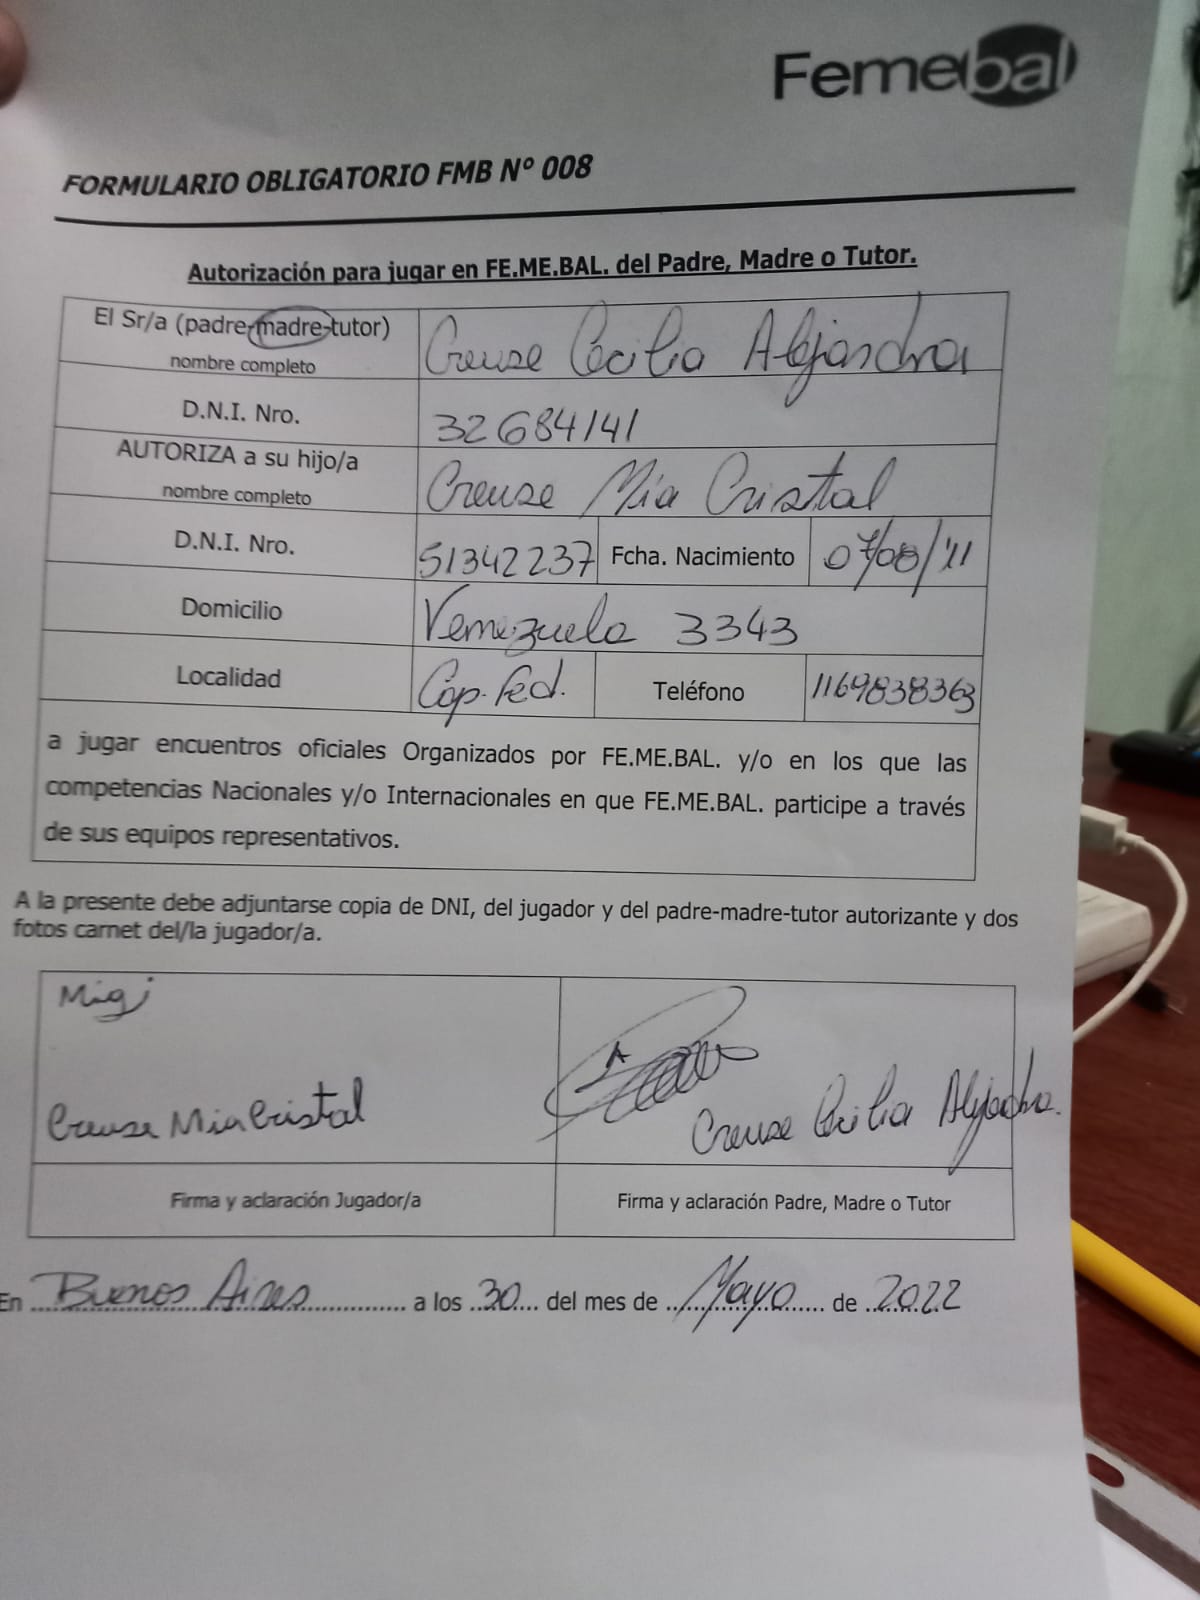 Femebal
FORMULARIO OBLIGATORIO FMB Nº 008
Autorización para jugar en FE.ME.BAL. del Padre, Madre o Tutor.
El Sr/a (padre-madre-tutor)
nombre completo
Creuse Cecilia Alejandra
D.N.I. Nro.
32684141
AUTORIZA a su hijo/a
nombre completo
Creuse Mia Cristal
D.N.I. Nro.
51342237
Fcha. Nacimiento
07/08/'11
Domicilio
Venezuela 3343
Localidad
Cap. Fed.
Teléfono
1169838363
a jugar encuentros oficiales Organizados por FE.ME.BAL. y/o en los que las
competencias Nacionales y/o Internacionales en que FE.ME.BAL. participe a través
de sus equipos representativos.
A la presente debe adjuntarse copia de DNI, del jugador y del padre-madre-tutor autorizante y dos
fotos carnet del/la jugador/a.
Creuse Mia Cristal
Creuse Cecilia Alejandra.
Firma y aclaración Jugador/a
Firma y aclaración Padre, Madre o Tutor
En Buenos Aires a los 30 del mes de Mayo de 2022